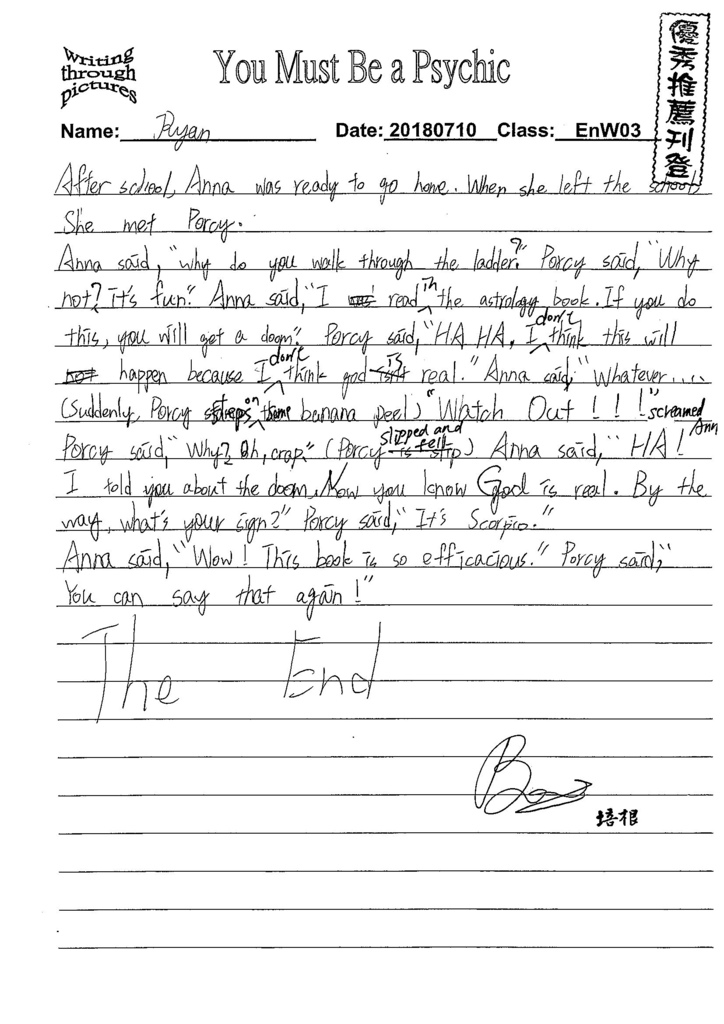 優秀推薦刊登
Writing
through
pictures
You Must Be a Psychic
Name: Ryan Date: 20180710 Class: EnW03
After school, Anna was ready to go home. When she left the school
She met Porcy.
Anna said, "why do you walk through the ladder?" Porcy said, "Why
not? it's fun." Anna said, "I read in the astrology book. If you do
this, you will get a doom." Porcy said, "HA HA, I don't think this will
happen because I don't think god is real." Anna said, "Whatever.....
(Suddenly, Porcy steps on banana peel) "Watch Out!!!" screamed Ann
Porcy said, "Why? Oh, crap." (Porcy slipped and fell) Anna said, "HA!
I told you about the doom. Now you know God is real. By the
way, what's your sign?" Porcy said, "It's Scorpio."
Anna said, "Wow! This book is so efficacious." Porcy said, "
You can say that again!"
The End
培根